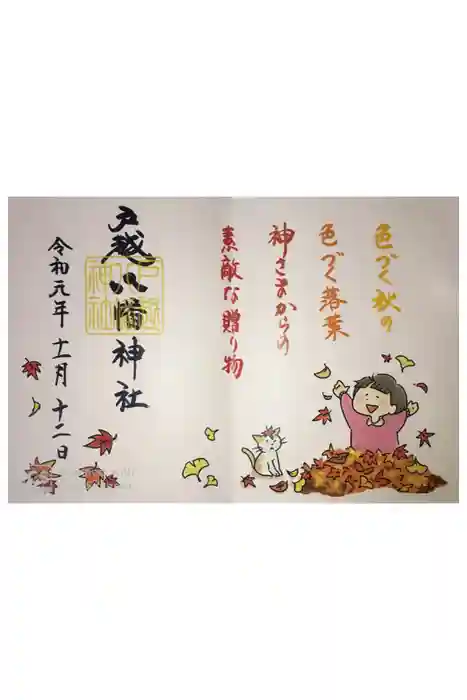 色づく秋の
色づく落葉
神さまからの
素敵な贈り物
戸越八幡神社
令和元年 十一月 十二日